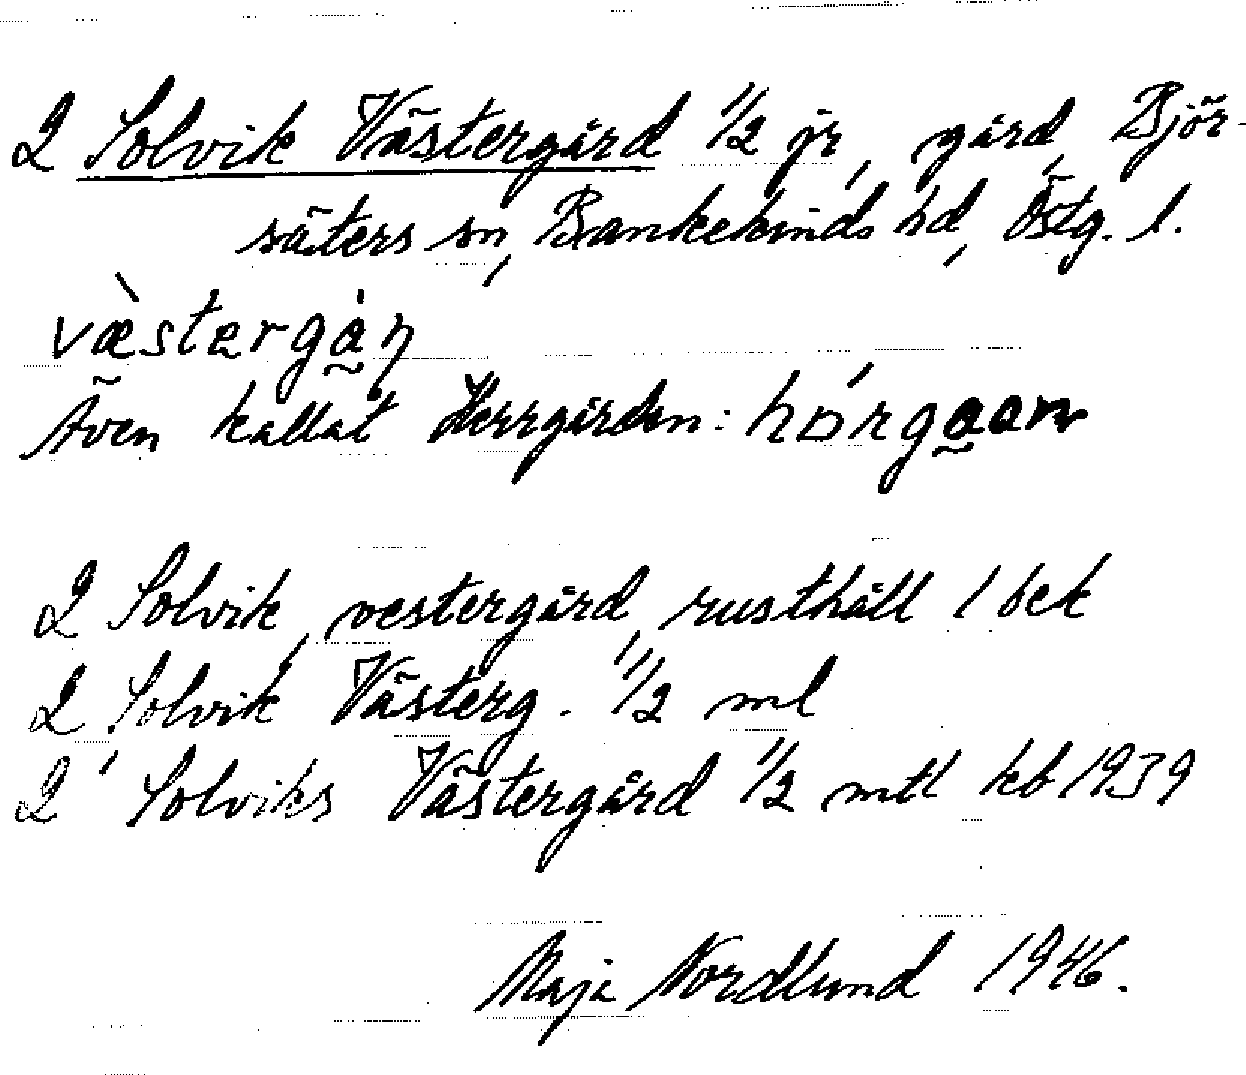 2 Solvik Västergård 1/2 jr, gård, Björ-
säters sn, Bankekinds hd, Östg. l.
væ̀stərgå̀ṇ
Även kallat Herrgården:
2 Solvik, vestergård, rusthåll 1 bek
2 Solvik Västerg. 1/2 ml
2 Solviks Västergård 1/2 mtl kb 1939
Maja Nordlund 1946.